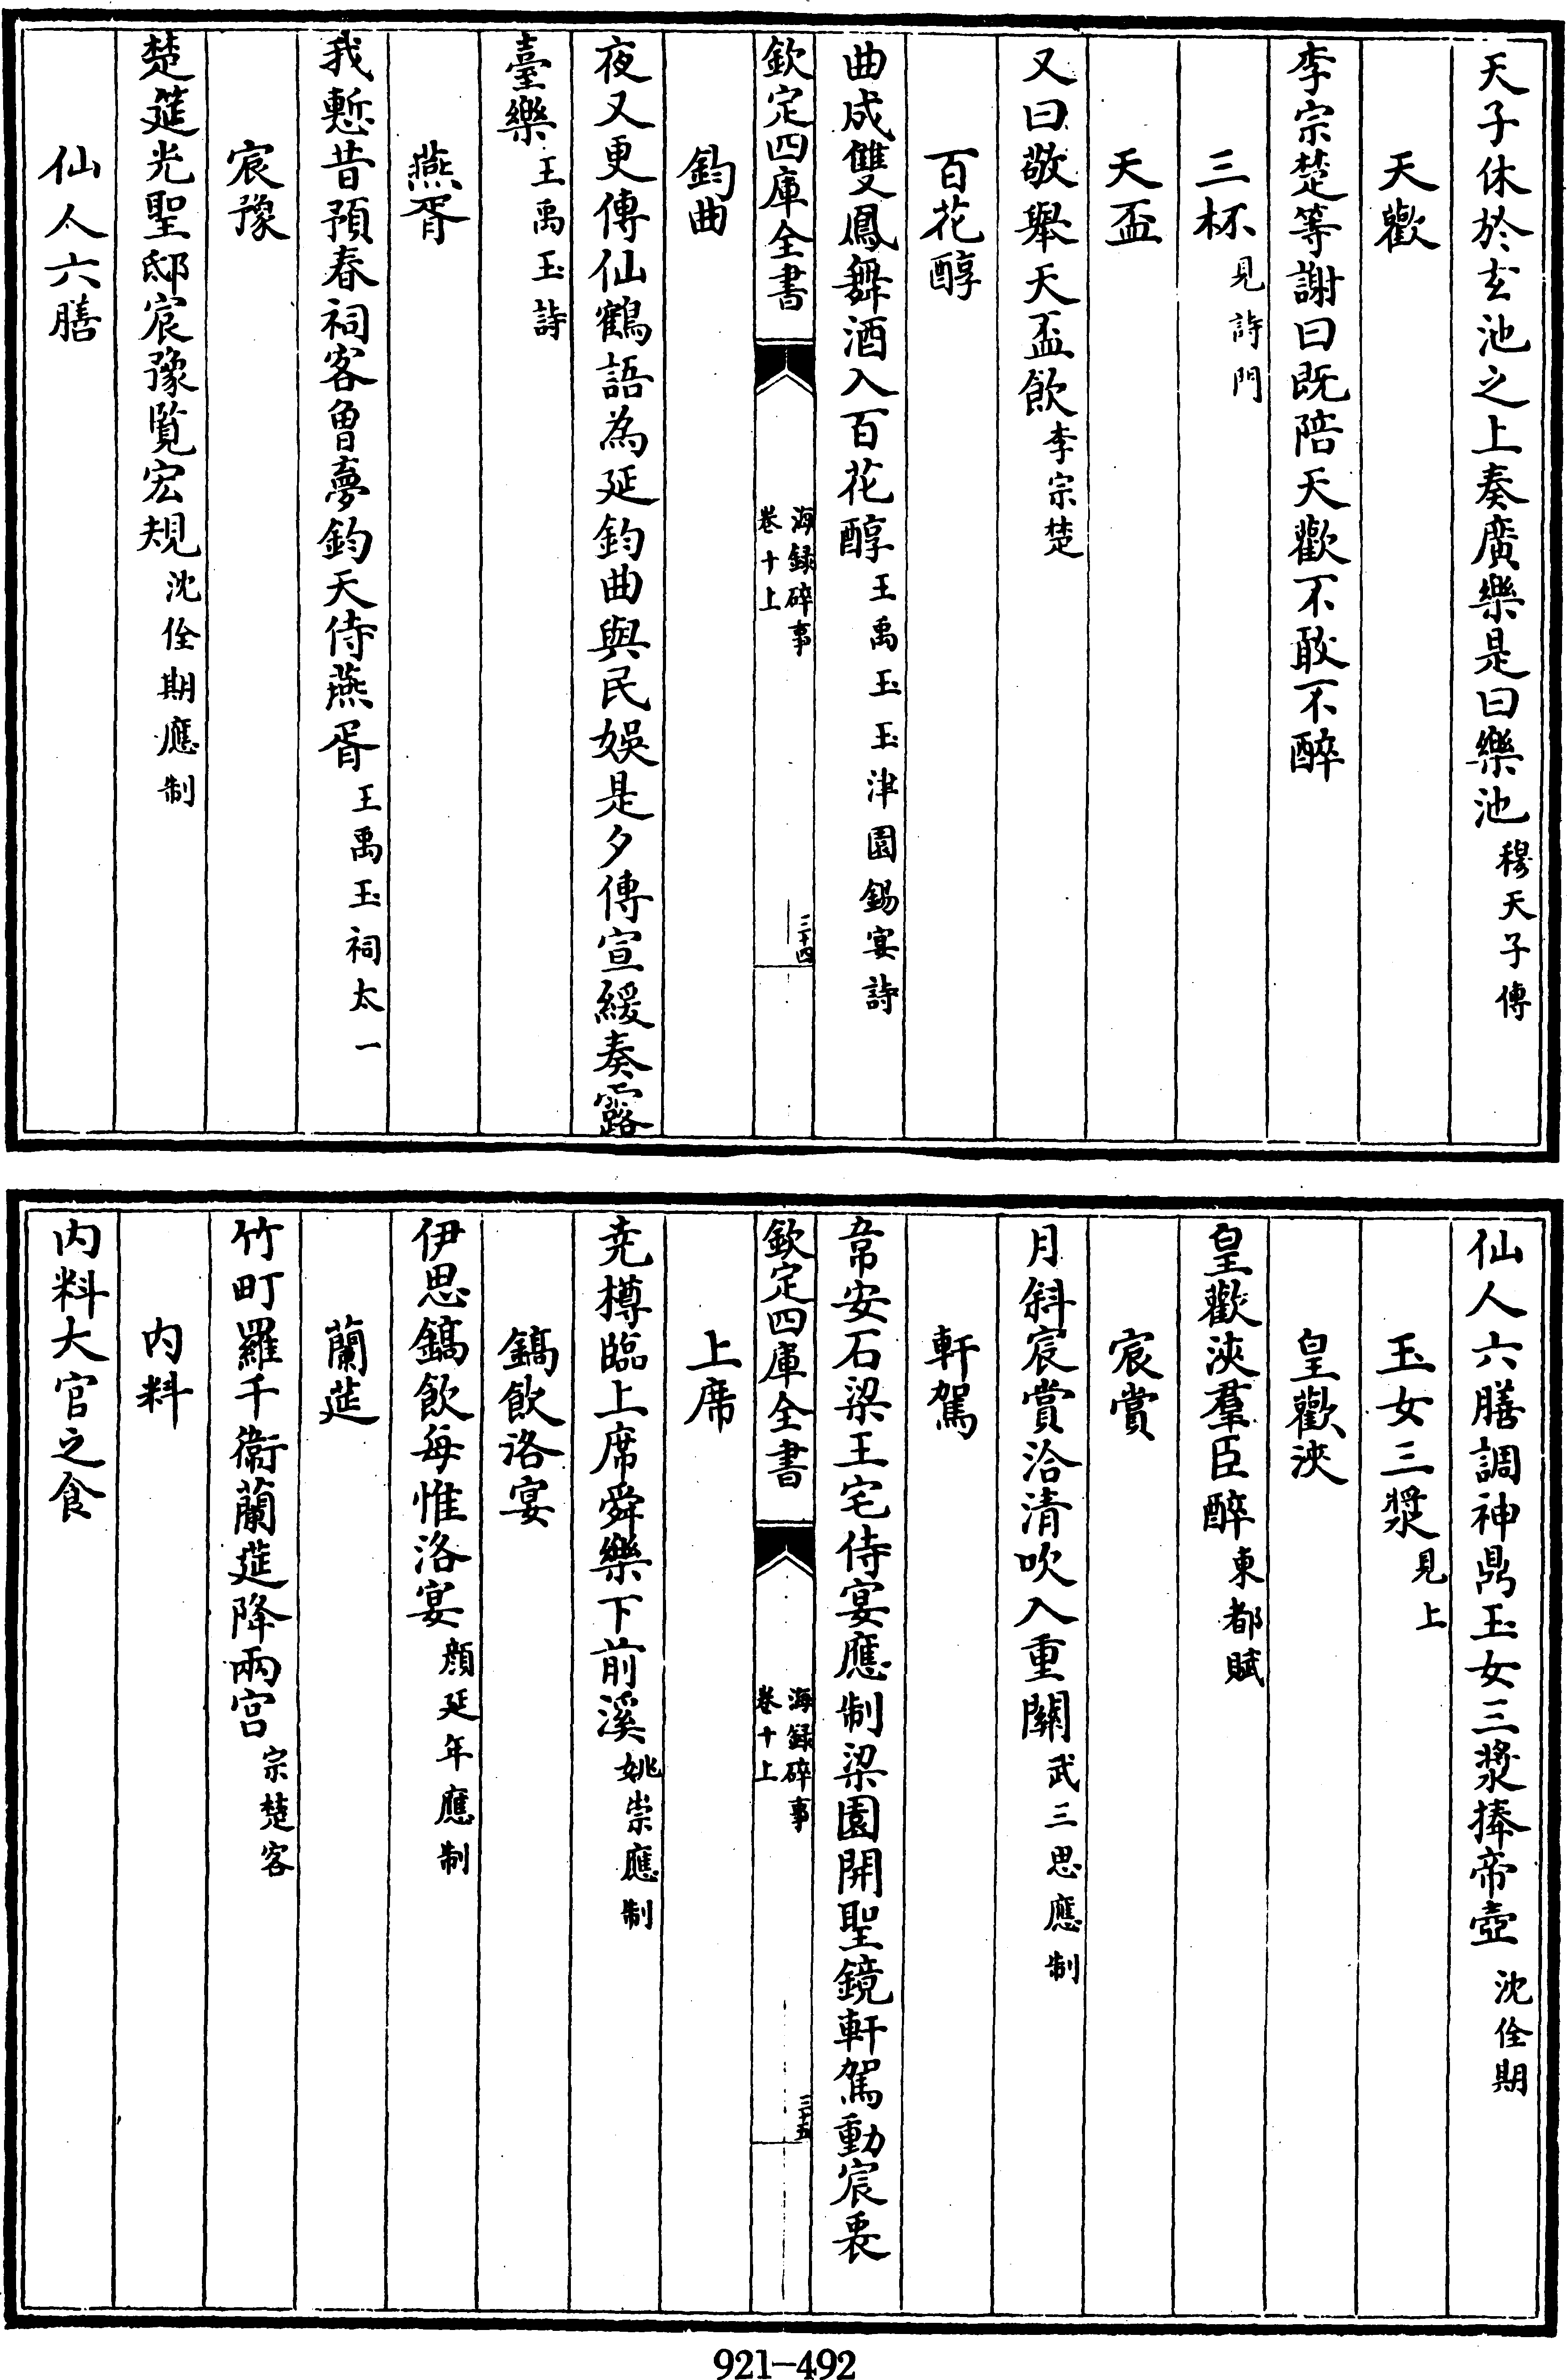 天子休於玄池之上奏廣樂是曰樂池穆天子傳
天歡
李宗楚等謝曰既陪天歡不敢不醉
三杯見詩門
天盃
又曰敬舉天盃飲李宗楚
百花醇
曲成雙鳳舞酒入百花醇王禹玉玉津園錫宴詩
欽定四庫全書
海録碎事
卷十上
三十四
鈞曲
夜又更傳仙鶴語為延鈞曲與民娛是夕傳宣緩奏露
臺樂王禹玉詩
燕胥
我慙昔預春祠客曾夢鈞天侍燕胥王禹玉祠太一
宸豫
楚筵光聖邸宸豫覧宏規沈佺期應制
仙人六膳
仙人六膳調神鼎玉女三漿捧帝壺沈佺期
玉女三漿見上
皇歡浹
皇歡浹羣臣醉東都賦
宸賞
月斜宸賞洽清吹入重關武三思應制
軒駕
韋安石梁王宅侍宴應制梁園開聖鏡軒駕動宸衷
欽定四庫全書
海録碎事
卷十上
三十五
上席
尭樽臨上席舜樂下前溪姚崇應制
鎬飲洛宴
伊思鎬飲每惟洛宴顔延年應制
蘭筵
竹町羅千衛蘭筵降兩宫宗楚客
内料
内料大官之食
921-492